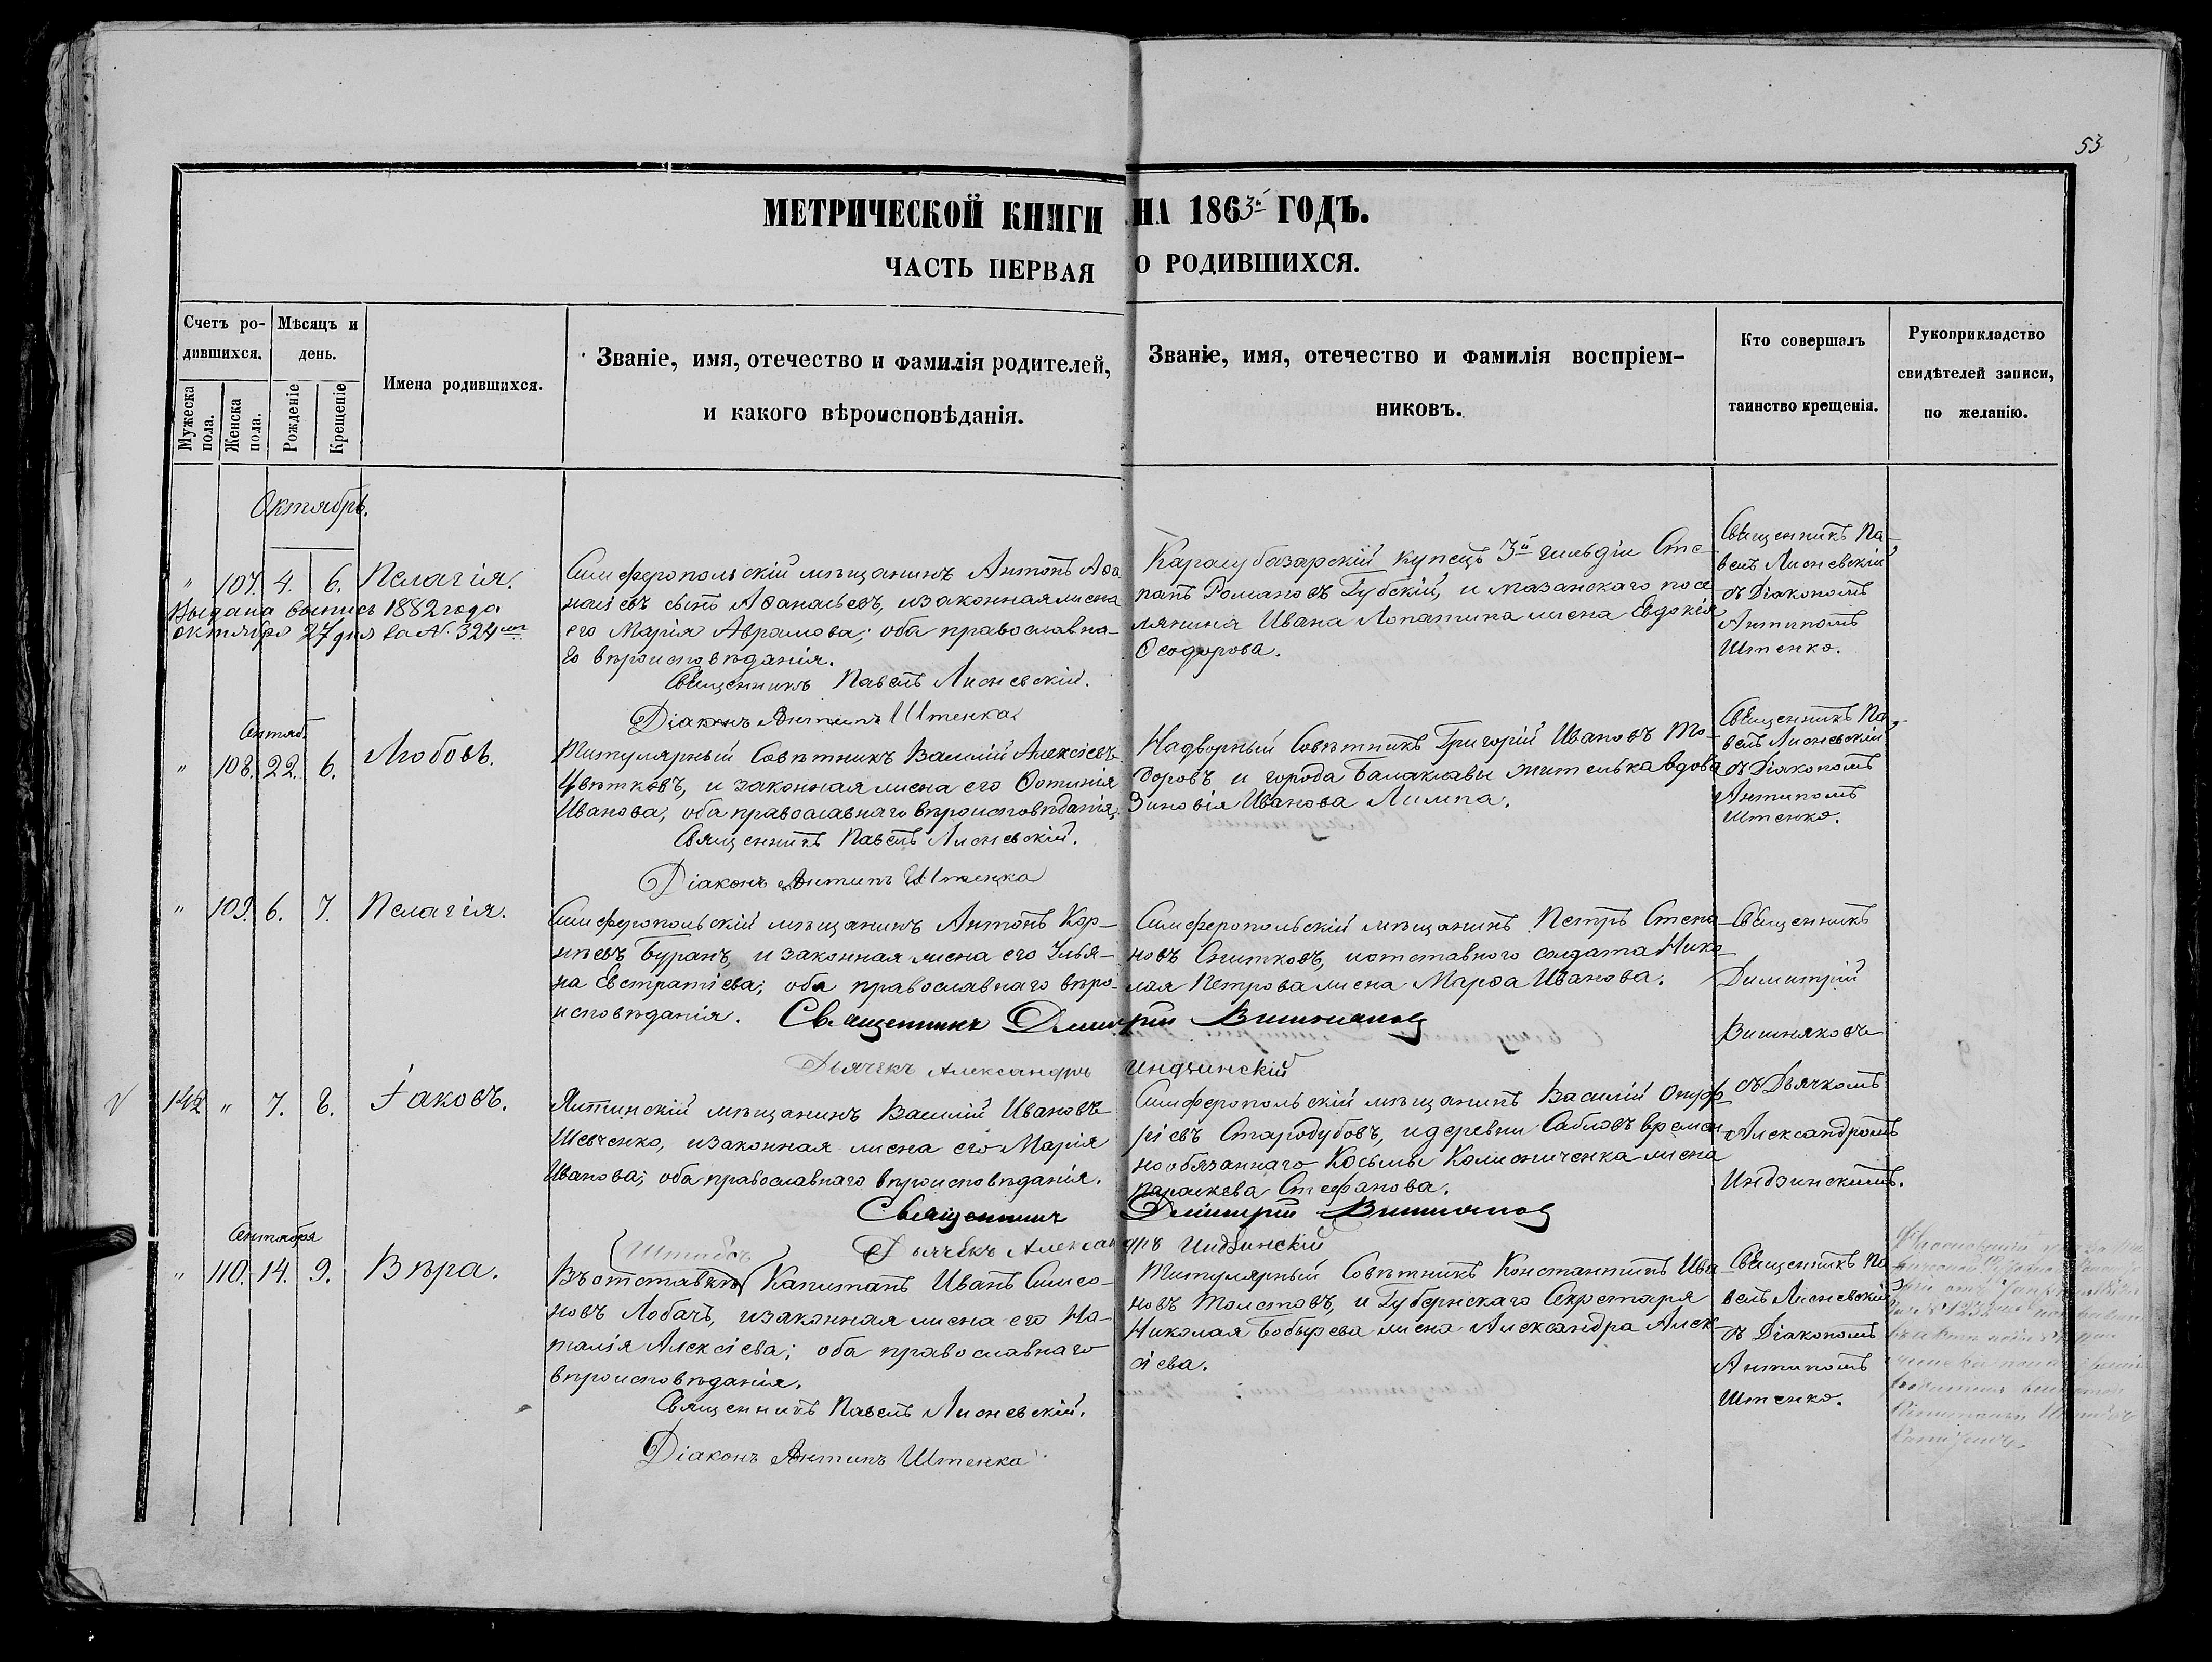 53
МЕТРИЧЕСКОЙ КНИГИ НА 1863й ГОДЪ.
ЧАСТЬ ПЕРВАЯ О РОДИВШИХСЯ.
Счетъ ро-
дившихся.
Мужеска пола.
Женска пола.
Мѣсяцъ и
день.
Рожденіе
Крещеніе
Имена родившихся.
Званіе, имя, отечество и фамилія родителей,
и какого вѣроисповѣданія.
Званіе, имя, отечество и фамилія воспріем-
никовъ.
Кто совершалъ
таинство крещенія.
Рукоприкладство
свидѣтелей записи,
по желанію.
Октябрь.
" 107. 4. 6. Пелагія.
Выдана выпись 1882 года
октября 27 дня за №. 324
Симферопольскій мѣщанинъ Антонъ Аѳа
насіевъ сынъ Аѳанасьевъ, и законная жена
его Марія Аврамова; оба православна-
го вѣроисповѣданія.
Священникъ Павелъ Лисневскій.
Діаконъ Антипъ Штенка
Карасубазарскій купецъ 3й гильдіи Сте-
панъ Романовъ Губскій, и мазанскаго посе
лянина Ивана Лопатина жена Евдокія
Ѳеодорова.
Священникъ Па-
велъ Лисневскій
съ Діакономъ
Антипомъ
Штенко.
Сентяб.
" 108. 22. 6. Любовь.
Титулярный Совѣтникъ Василій Алексіевъ
Цвѣтковъ, и законная жена его Фотинія
Иванова; оба православнаго вѣроисповѣданія.
Священникъ Павелъ Лисневскій.
Діаконъ Антипъ Штенка
Надворный Совѣтникъ Григорій Ивановъ То-
доровъ и города Балаклавы жителька вдова
Зиновія Иванова Лимпа.
Священникъ Па-
велъ Лисневскій
съ Діакономъ
Антипомъ
Штенко.
" 109. 6. 7. Пелагія.
Симферопольскій мѣщанинъ Антонъ Кор-
нѣевъ Буранъ, и законная жена его Улья-
на Евстратіева; оба православнаго вѣро-
исповѣданія.
Священникъ Димитрій Вишняковъ
Дьячекъ Александръ Индзинскій
Симферопольскій мѣщанинъ Петръ Степа-
новъ Снитковъ, и отставного солдата Нико-
лая Петрова жена Марѳа Иванова.
Священникъ
Димитрій
Вишняковъ
съ Дьячкомъ
Александромъ
Индзинскимъ.
142 " 7. 8. Іаковъ.
Ялтинскій мѣщанинъ Василій Ивановъ
Шевченко, и законная жена его Марія
Иванова; оба православнаго вѣроисповѣданія.
Священникъ Димитрій Вишняковъ
Дьячекъ Александръ Индзинскій
Симферопольскій мѣщанинъ Василій Онуф-
ріевъ Стародубовъ, и деревни Сабловъ времен-
нообязаннаго Косьмы Колисниченка жена
Параскева Стефанова.
Сентября
" 110. 14. 9. Вѣра.
(Штабсъ)
Въ отставкѣ Капитанъ Иванъ Симео-
новъ Лобачъ, и законная жена его На-
талія Алексіева; оба православнаго
вѣроисповѣданія.
Священникъ Павелъ Лисневскій.
Діаконъ Антипъ Штенка
Титулярный Совѣтникъ Константинъ Ива
новъ Толстовъ, и Губернскаго Секретаря
Николая Бобырева жена Александра Алек-
сіева.
Священникъ Па-
велъ Лисневскій
съ Діакономъ
Антипомъ
Штенко.